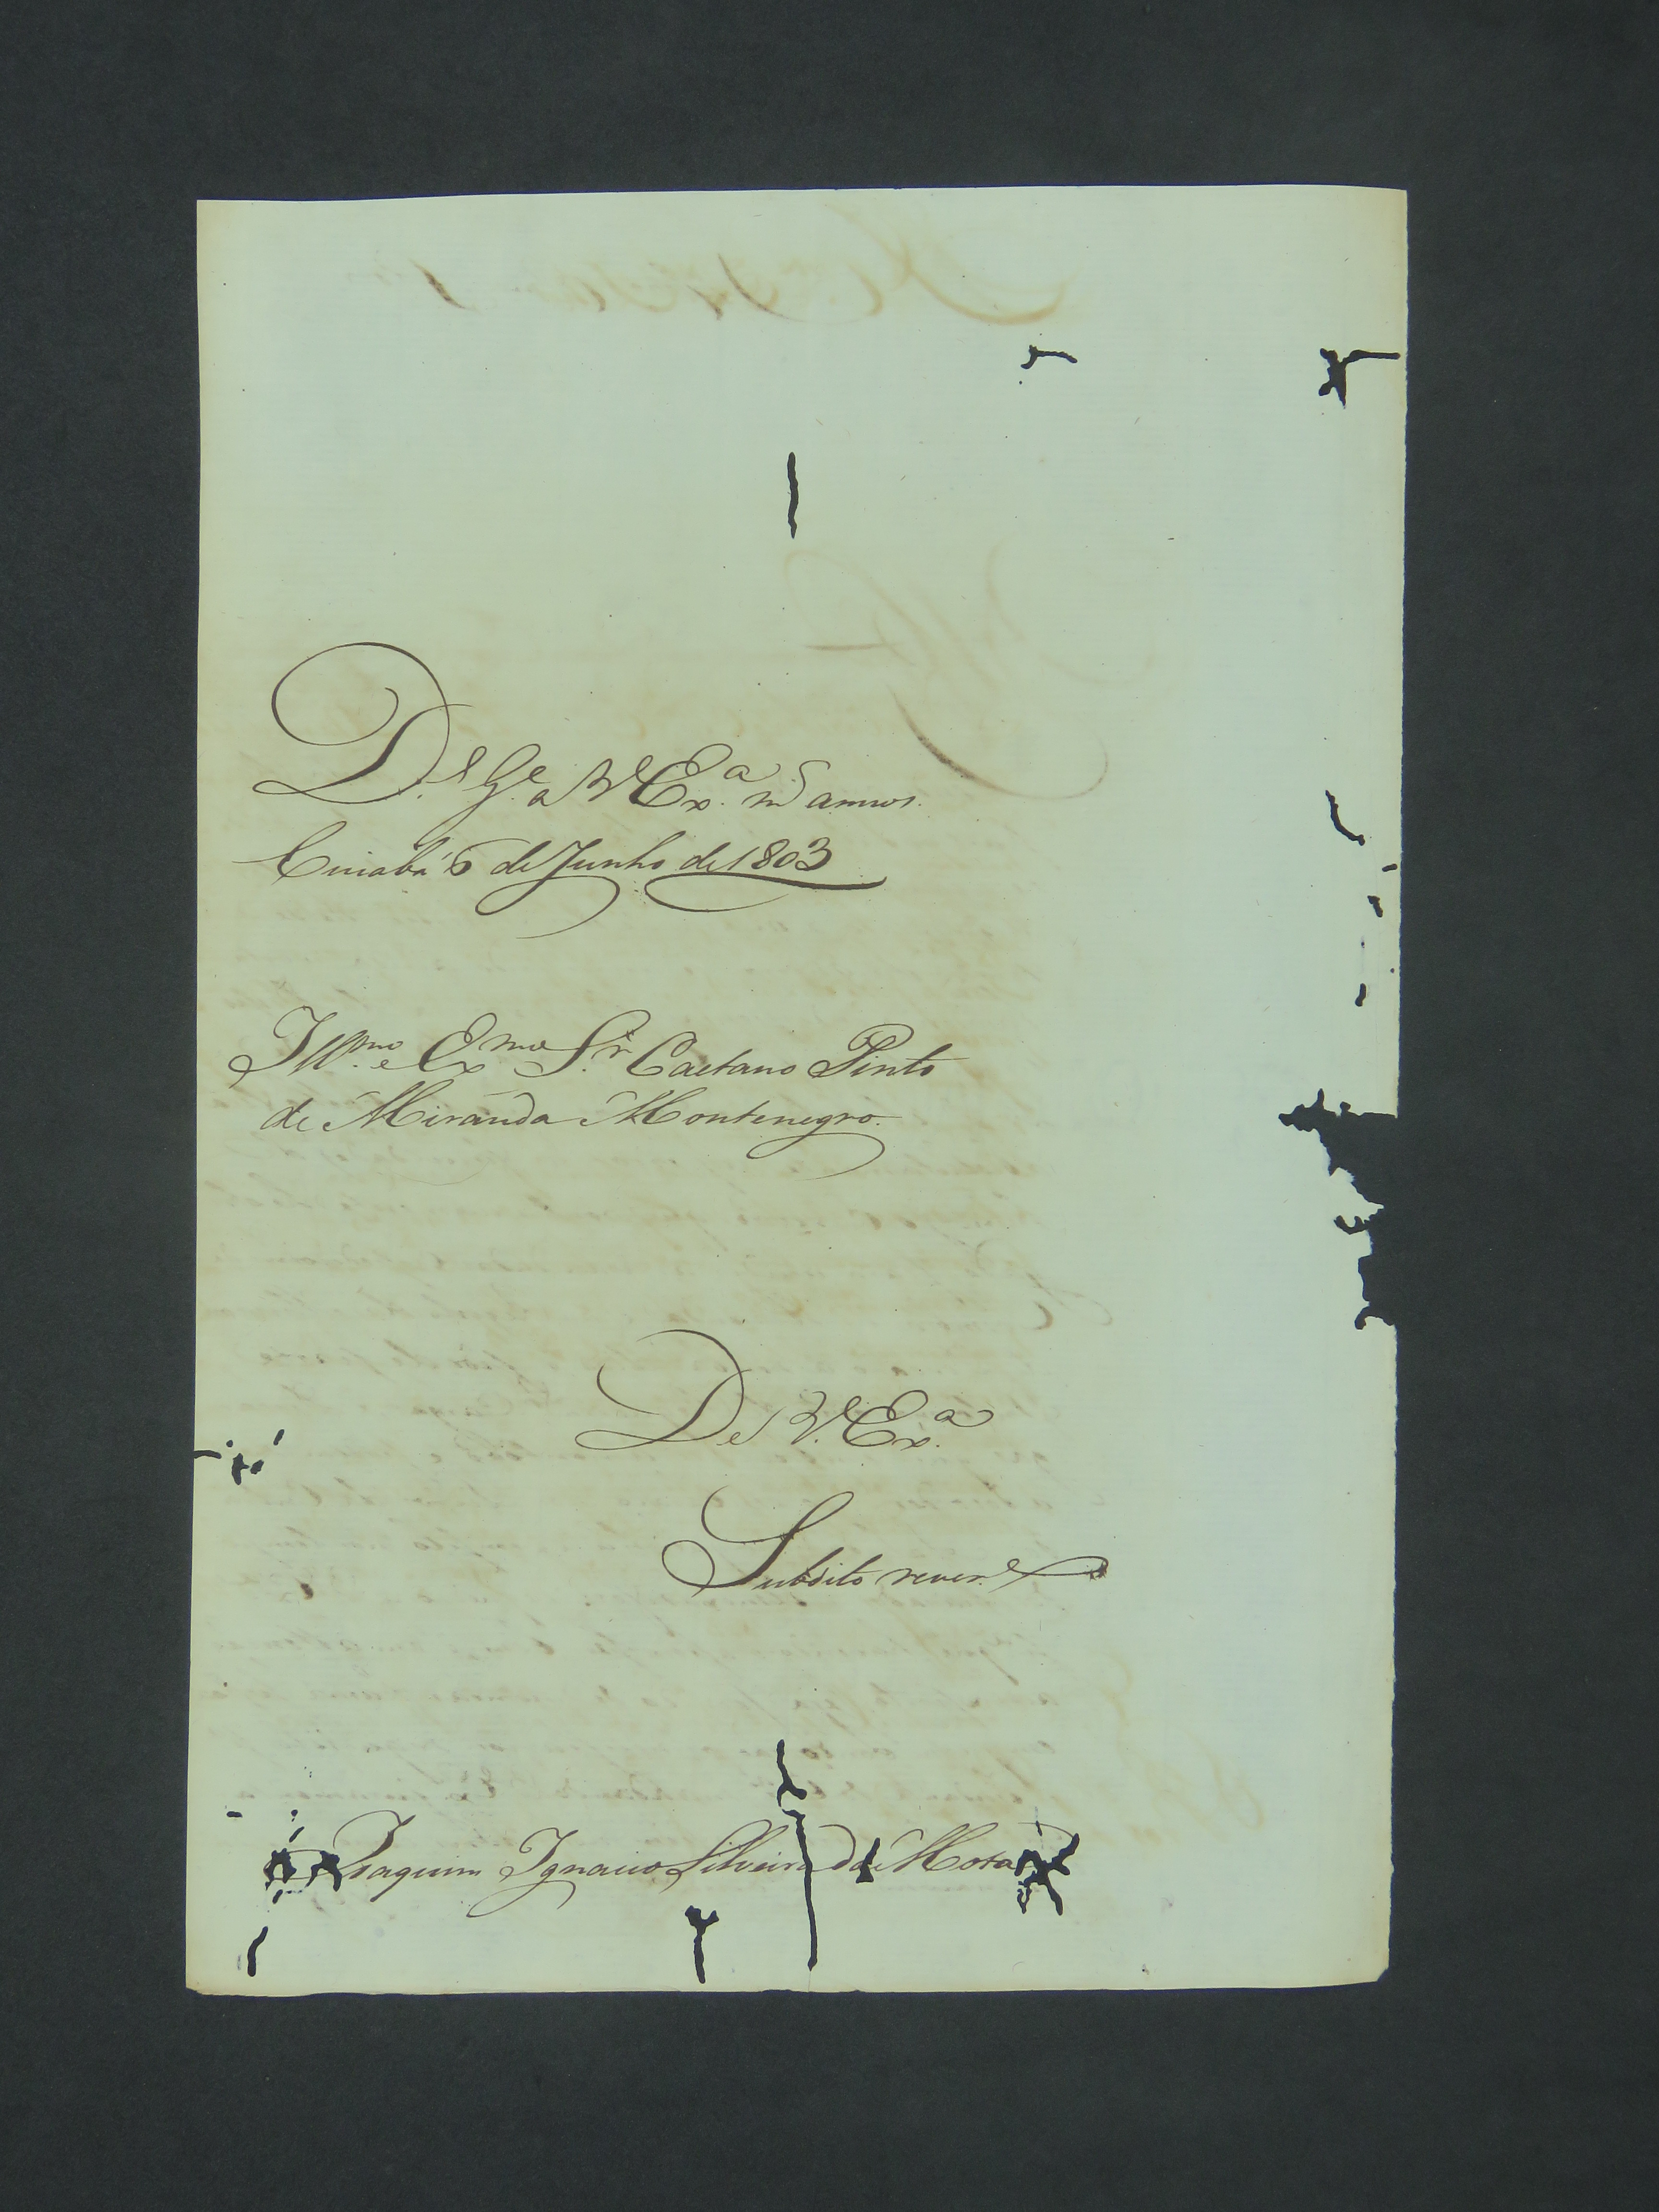 D.s G.e a V Ex.a m.s annos.
Cuiabá 6 de Junho de 1803
Ill.mo e Ex.mo S.r Caetano Pinto
de Miranda Montenegro.
De V. Ex.a
Subdito rever.e
Joaquim Ignacio Silveira da Mota